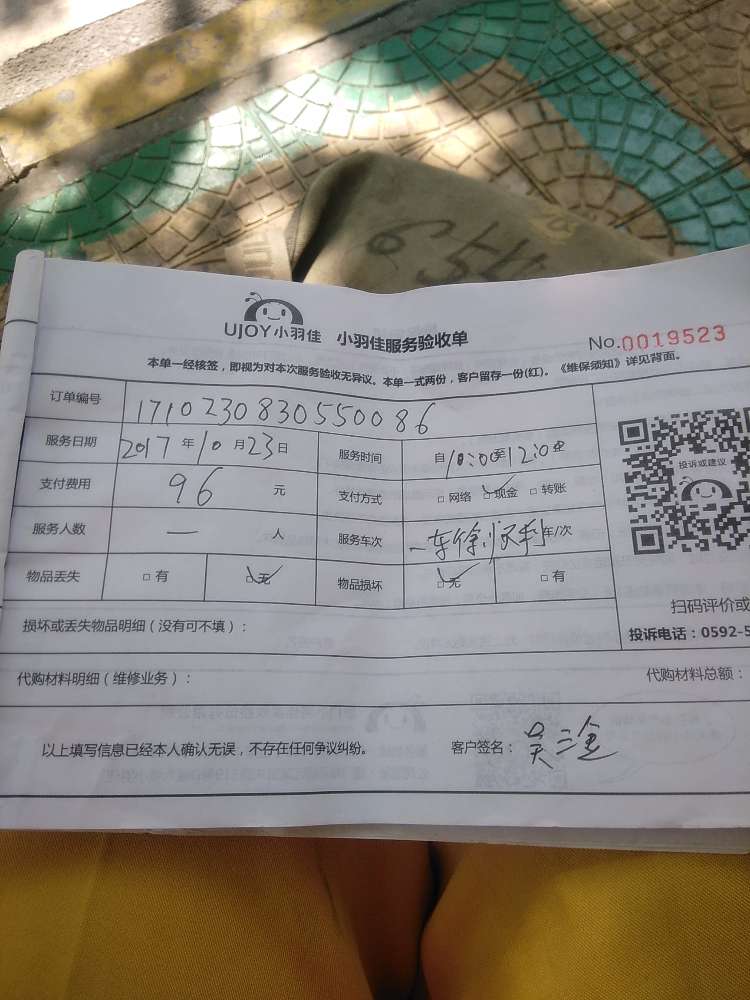 654
UJOY小羽佳 小羽佳服务验收单 No.0019523
本单一经核签，即视为对本次服务验收无异议。本单一式两份，客户留存一份(红)。《维保须知》详见背面。
订单编号 1710230830550086
服务日期 2017年10月23日 服务时间 自10:00至12:00
支付费用 96 元 支付方式 □网络 □现金 □转账
投诉或建议
服务人数 一 人 服务车次 一车 车/次
物品丢失 □有 □无 物品损坏 □无 □有
扫码评价或
损坏或丢失物品明细（没有可不填）：
投诉电话：0592-5
代购材料明细（维修业务）： 代购材料总额：
以上填写信息已经本人确认无误，不存在任何争议纠纷。 客户签名：吴三金